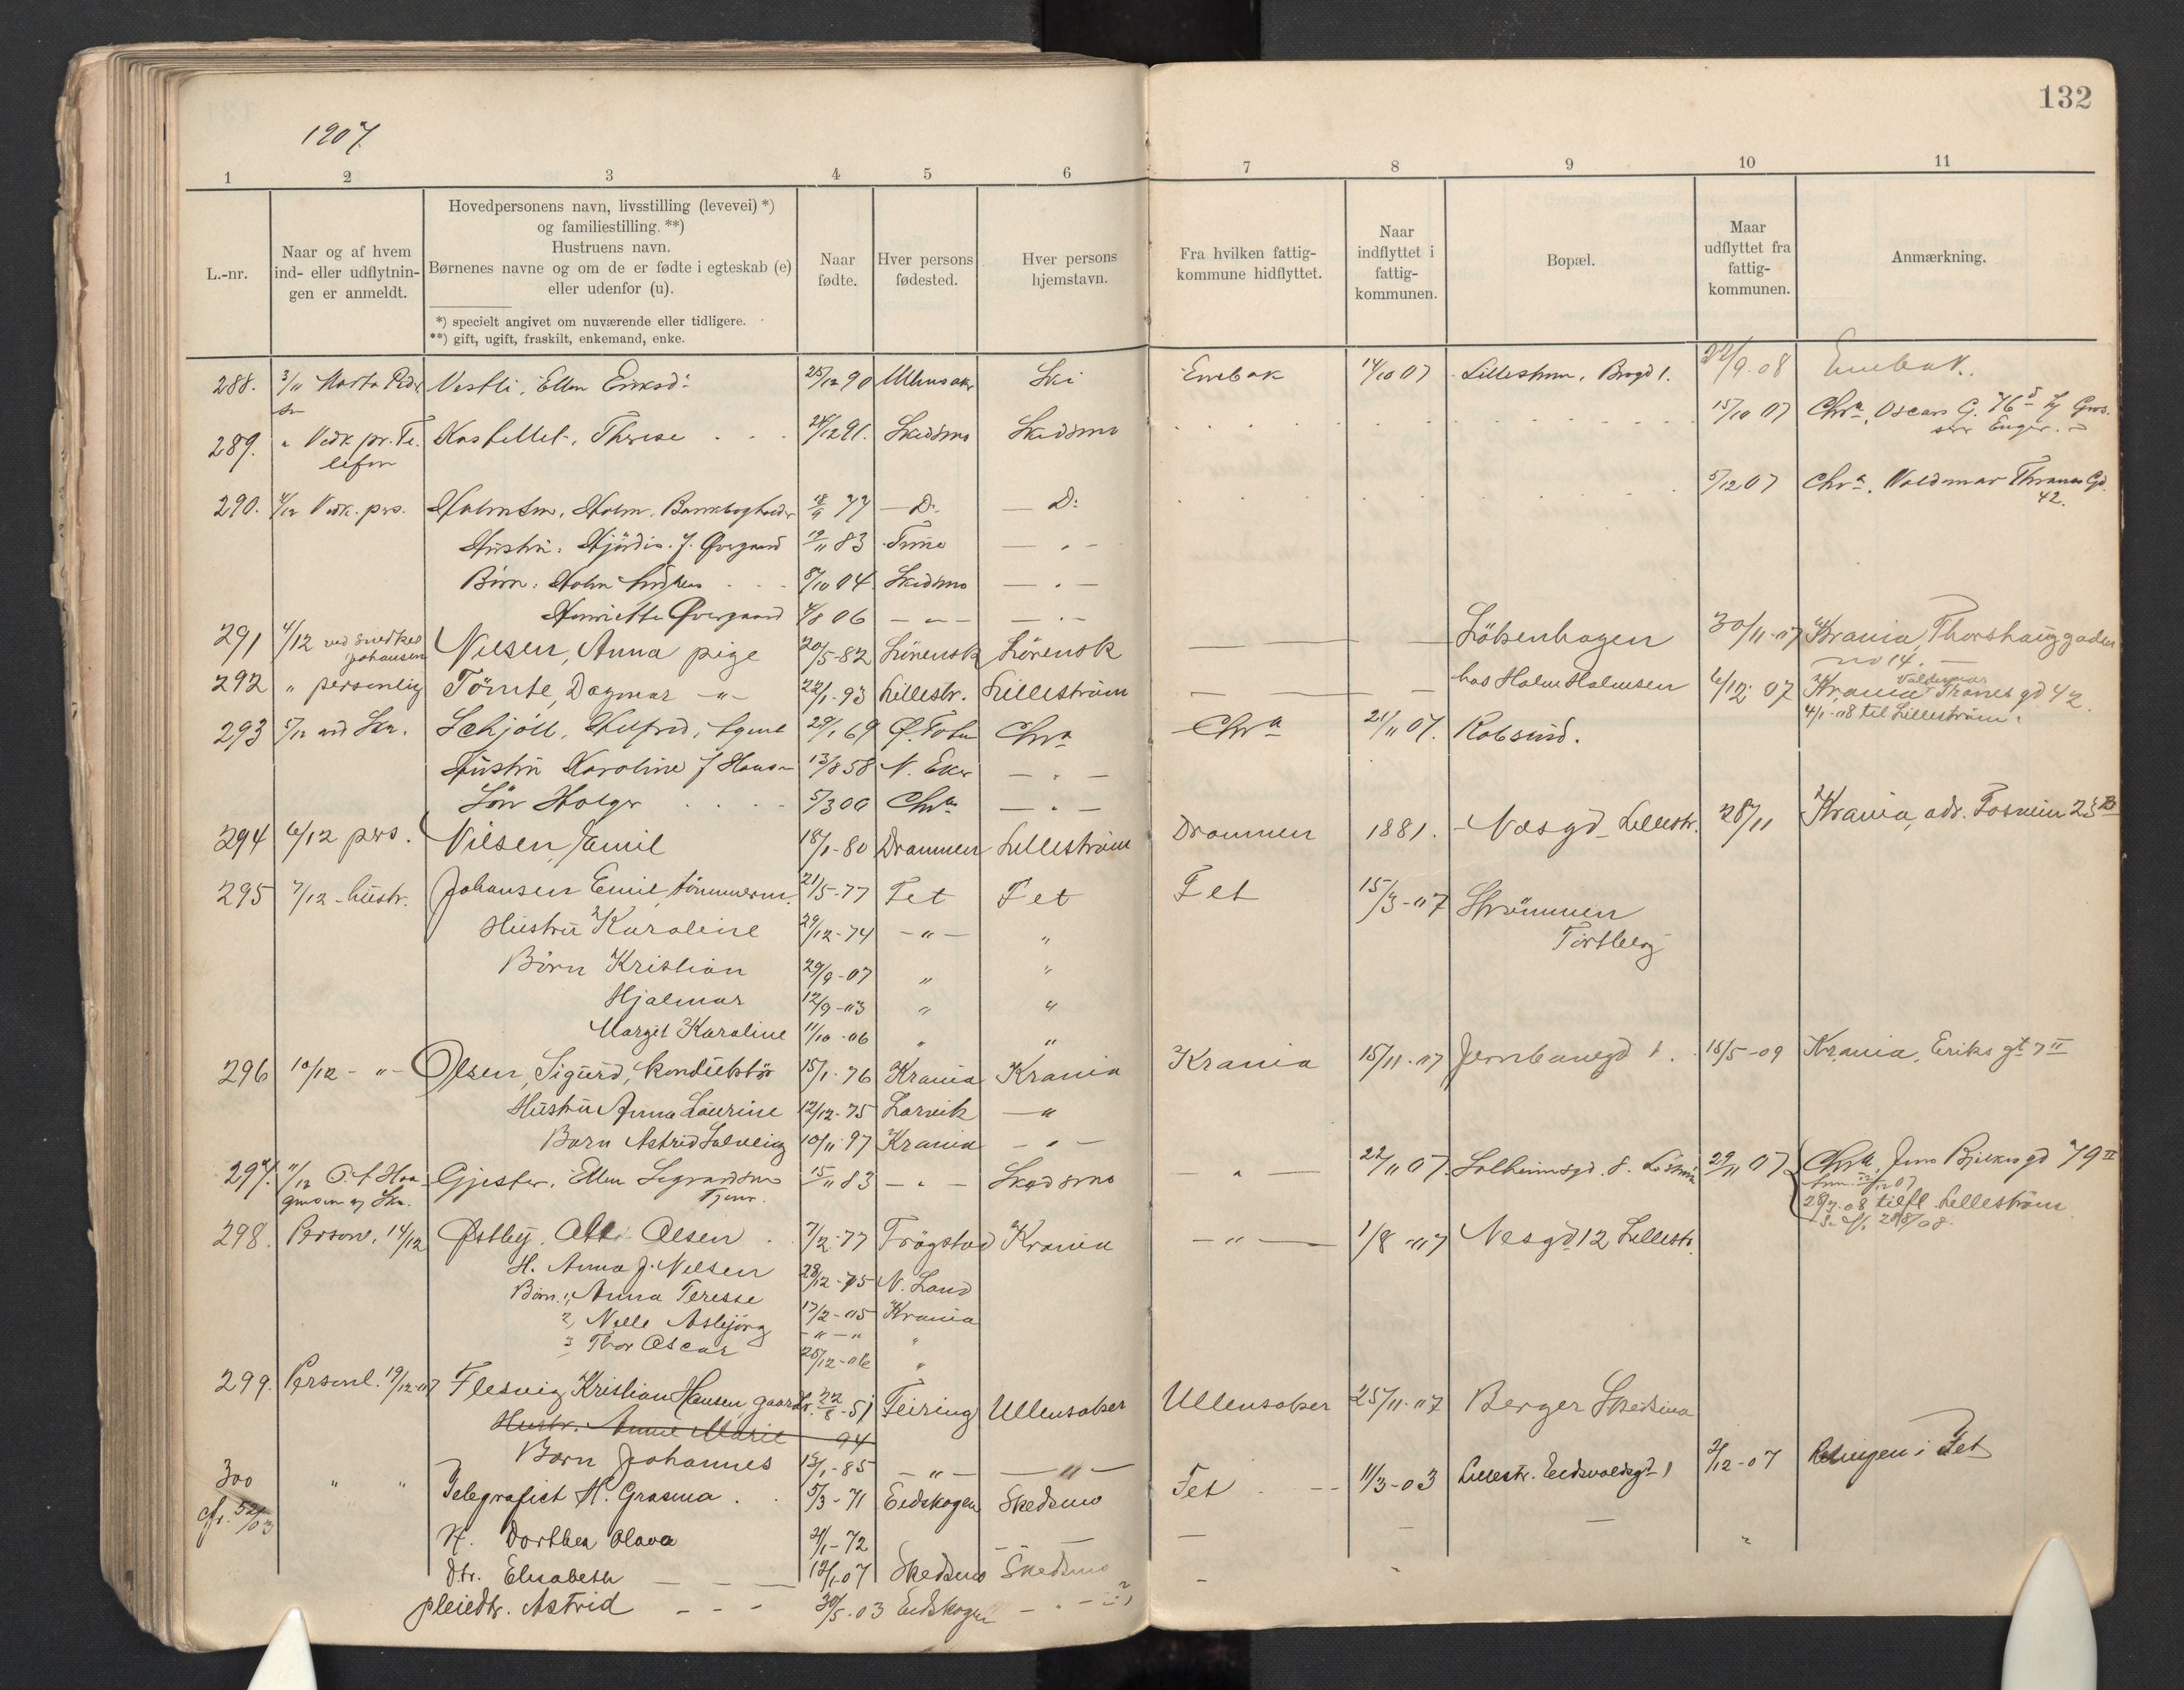 132
1907
1 2 3 4 5 6 7 8 9 10 11
L.-nr.
Naar og af hvem
ind- eller udflytnin-
gen er anmeldt.
Hovedpersonens navn, livsstilling (levevei) *)
og familiestilling. **)
Hustruens navn.
Børnenes navne og om de er fødte i egteskab (e)
eller udenfor (u).
*) specielt angivet om nuværende eller tidligere.
**) gift, ugift, fraskilt, enkemand, enke.
Naar
fødte.
Hver persons
fødested.
Hver persons
hjemstavn.
Fra hvilken fattig-
kommune hidflyttet.
Naar
indflyttet i
fattig-
kommunen.
Bopæl.
Maar
udflyttet fra
fattig-
kommunen.
Anmærkning.
288. 3/11 Marta Vestli, Ellen 25/12 90 Ski Enebak 14/10 07 Lillestrøm, Brogd 1. /9 08 Enebak.
289. " Vedk. pr. Te- Therese . . 24/12 91. Skedsmo Skedsmo 15/10 07 Chra, Oscars G. 76
lefon
290. 4/12 Vedk. pers. Holmsen, Holm, Bankbogholder 18/9 77 — D: — D: 5/12 07 Chra, Valdemar Thranes Gd.
42.
Hustru: Hjördis f. Øvergaard 19/11 83 — " —
Börn: Holm 8/10 04 Skedsmo — " —
Henriette Øvergaard 4/8 06 — " — — " —
291 4/12 ved snedker Nilsen, Anna pige 20/5-82 Lörensk Lörensk — — Löken­hagen 30/11-07 Krania, Thorshauggaden
Johansen no 14. —
292 " personlig Tömte, Dagmar —"— 22/1-93 Lillestr. Lilleström — — hos Holm Holmsen 6/12 07 Krania Valdemar Tranes gd 42.
4/1-08 til Lilleström.
293 5/12 ved Skr. Schjöll, Agent 29/1 69 Ø. Toten Chra Chra 21/11 07. Robsrud.
Hustru Karoline f Hansen 13/8 58 N. Eker — " —
Sön Holger . . . 5/3 00 Chra — " —
294 6/12 pers. Nilsen, Emil 18/1-80 Drammen Lilleström Drammen 1881. Nasgd. Lillestr. 28/11 Krania, adr.
295 7/12 - hustr. Johansen Emil, tömmerm. 21/5-77 Fet Fet Fet 15/3-07 Strömmen
Hustru Karoline 29/12-74 —"— " Torsberg
Börn Kristian 29/9-07 " "
Hjalmar 12/9-03 " "
Marget Karoline 11/10-06 " "
296 10/12 - " - Olsen, Sigurd, konduktör 15/1-76 Krania Krania Krania 15/11-07 Jernbanegd 1. 15/5-09 Krania, Eriks gt 7 II
Hustru Anna Laurine 12/12-75 Larvik — "
Barn Astrid Solveig 10/11-97 Krania — " —
297. 11/12 Gjester, Ellen 15/11 83 — " — Skedsmo — " — 22/11 07. Solheimsgd. 8. 29/11 07 Chra, Jens Bjelkes gd 79 II
Tjener. 12/12 07
28/3-08 tilfl. Lilleström
298. Person. 14/12 Østby, Olsen . 7/2-77 Trögstad Krania —"— 1/8-07 Nesgd 12 Lillestr.
H. Anna f. Nilsen 28/12-75 N. Land
Börn: 1, Anna Teresse 17/2-05 Krania
2, Nelle Asbjörg —"—" "
3 Thor Oscar 25/12-06 "
299. Personl. 19/12-07 Flesvig, Kristian Hansen gaardbr. 22/8-51 Feiring Ullensaker Ullensaker 25/11-07 Berger Skedsmo
Hustr. Anne Marie 94
Barn Johannes 13/1-85 —"— —"—
300 " " Telegrafist H. Grasmo . . 5/3-71 Eidskogen Skedsmo Fet . — 11/3-03 Lillestr. Eidsvoldsgt. 1 2/12-07 i Fet
cfr. 52/03
H. Dorthea Olava 21/1-72 — — — "
Dtr. Elisabeth — — — 12/1-07 Skedsmo Skedsmo
pleiedtr. Astrid — — — 30/5-03 Eidskogen — " —